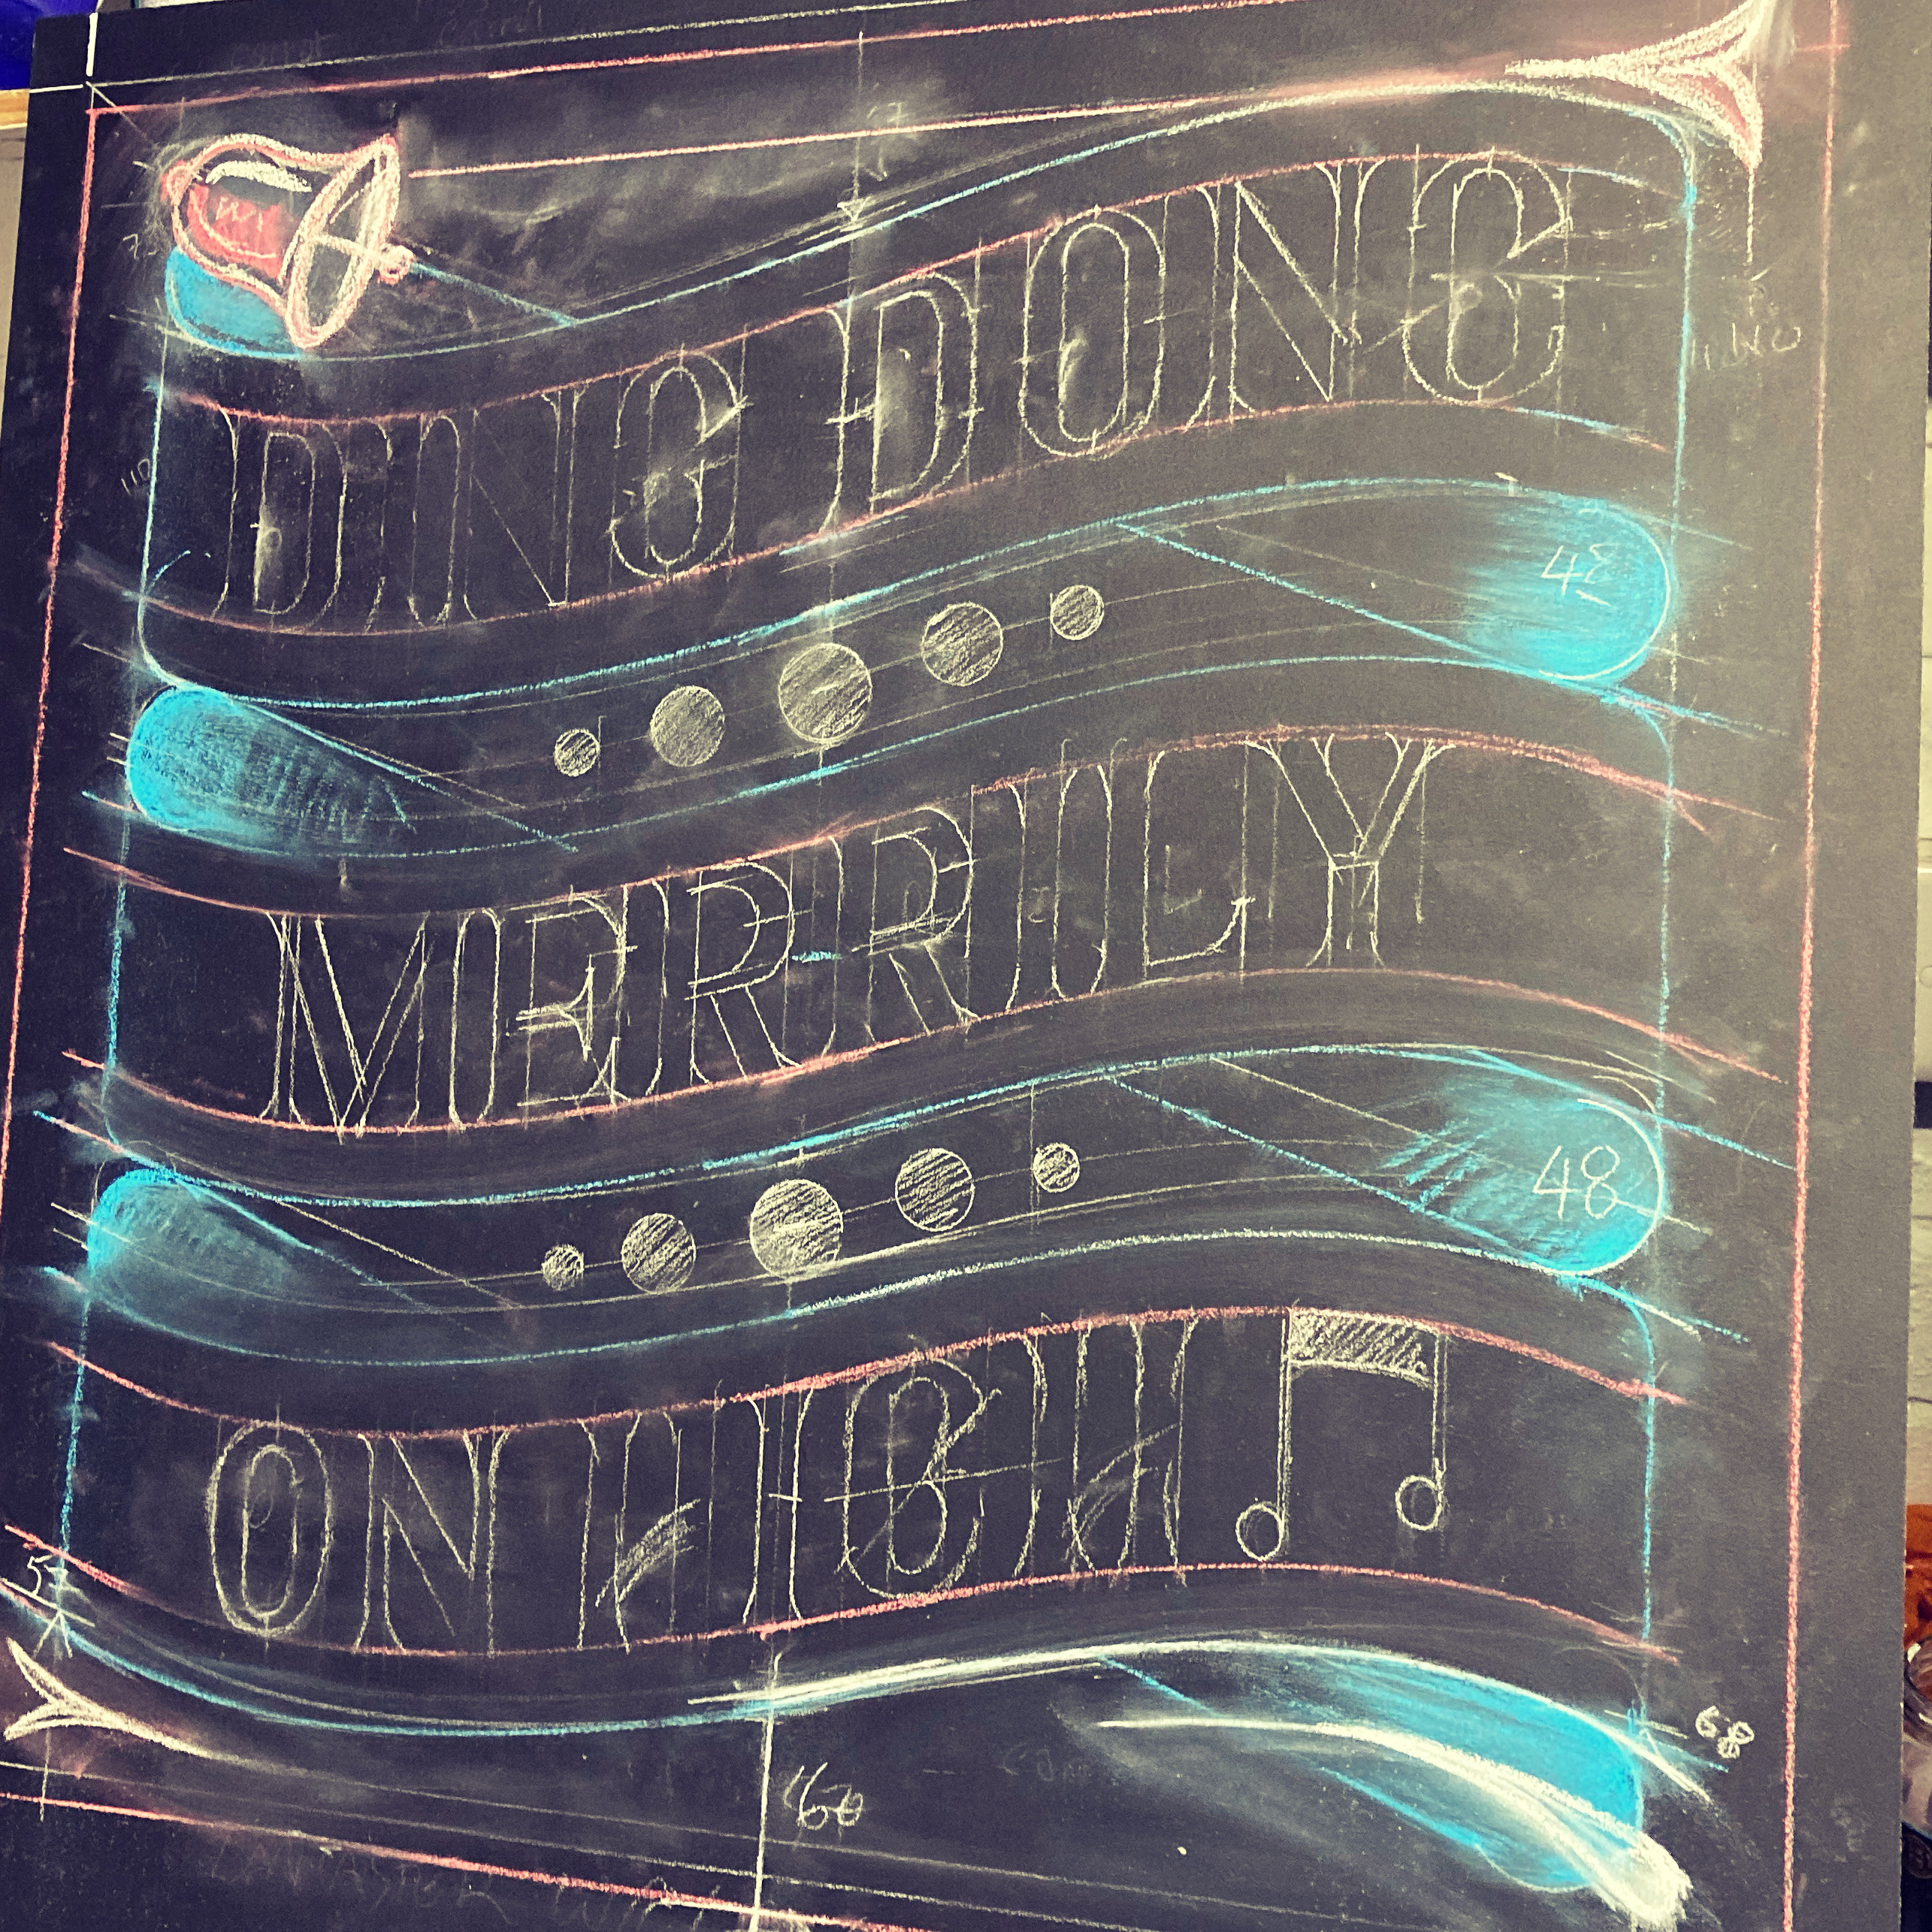 DING DONG
48
MERRILY
48
ON HIGH
68